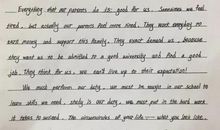 Everything what our parents do is good for us. Sometimes we feel
tired, but actually our parents feel more tired. They work everyday to
earn money and support this family. They must demand us, because
they want us to be admitted to a good university and find a good
job. They think for us, we can't live up to their expectation!
We must perform our duty. We must be taught in our school to
learn skills we need. Study is our duty, we must put in the hard work
it takes to succeed. The circumstances of your life — what you look like,